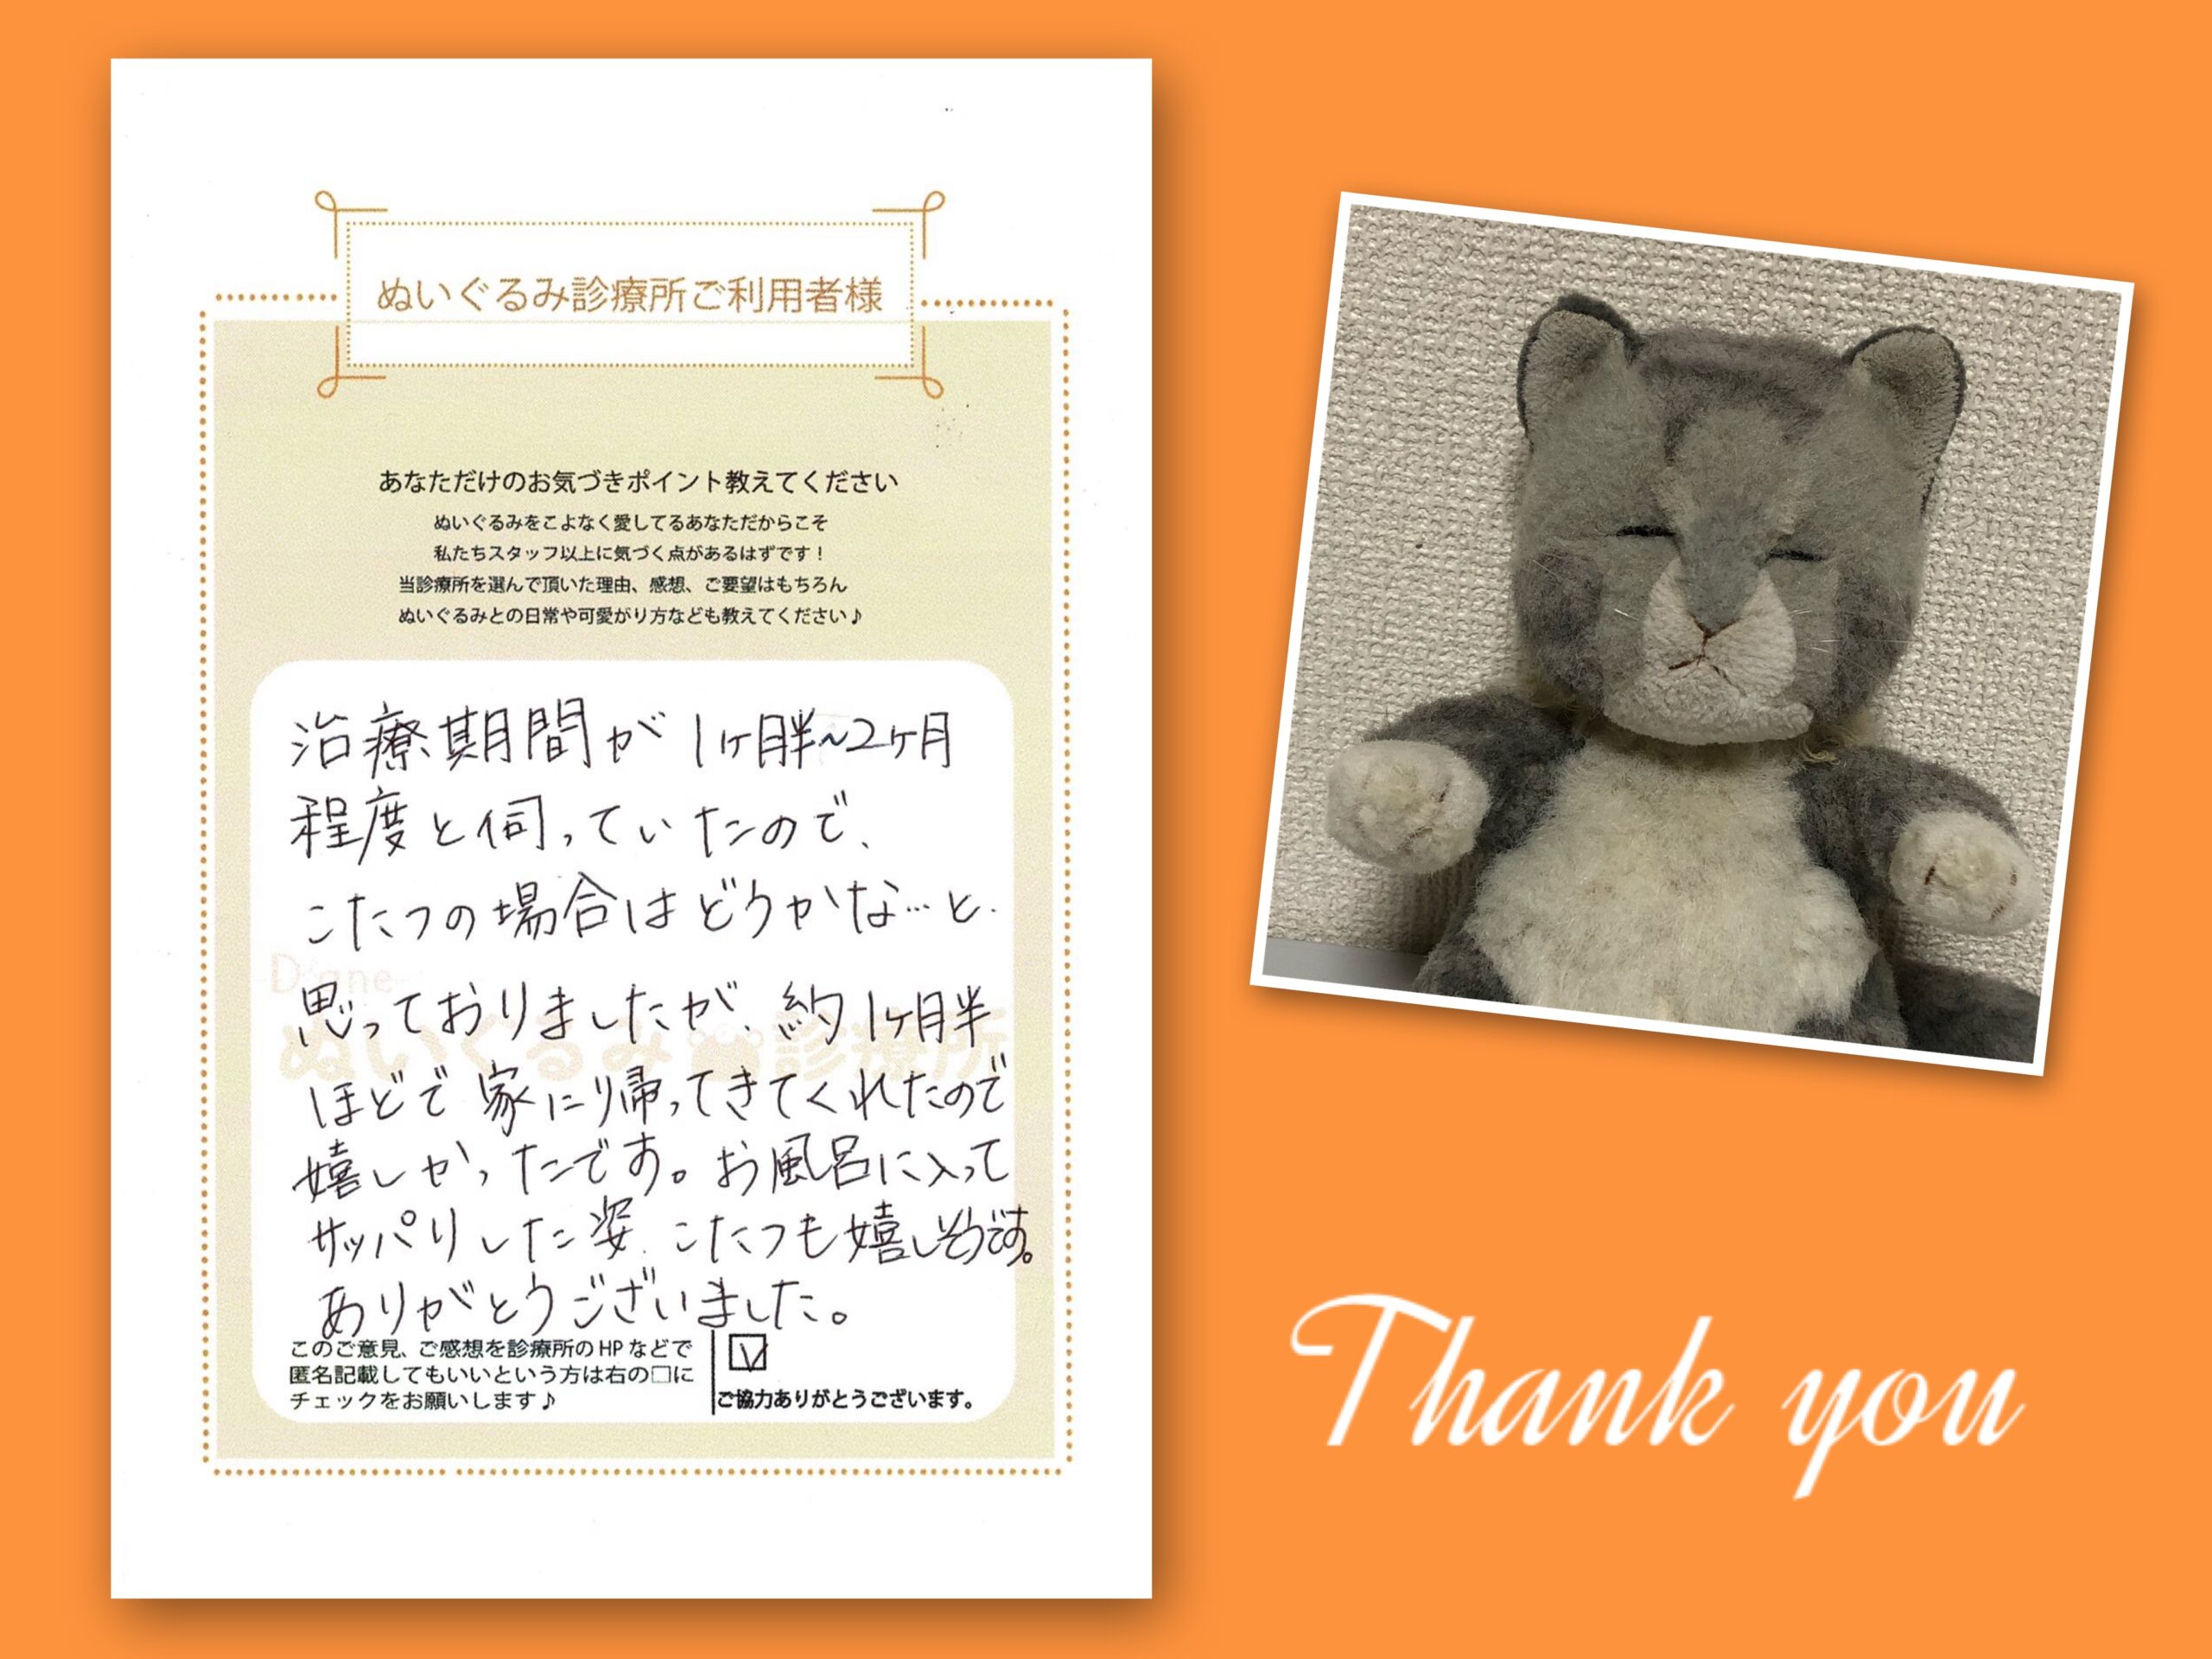 ぬいぐるみ診療所ご利用者様
あなただけのお気づきポイント教えてください
ぬいぐるみをこよなく愛してるあなただからこそ
私たちスタッフ以上に気づく点があるはずです！
当診療所を選んで頂いた理由、感想、ご要望はもちろん
ぬいぐるみとの日常や可愛がり方なども教えてください♪
治療期間が1ヶ月半~2ヶ月
程度と伺っていたので、
こたつの場合はどうかな…と、
Diane
思っておりましたが、約1ヶ月半
ぬいぐるみ診療所
ほどで家に帰ってきてくれたので
嬉しかったです。お風呂に入って
サッパリした姿、こたつも嬉しそうです。
ありがとうございました。
このご意見、ご感想を診療所のHPなどで
匿名記載してもいいという方は右の□に
チェックをお願いします♪
ご協力ありがとうございます。
Thank you